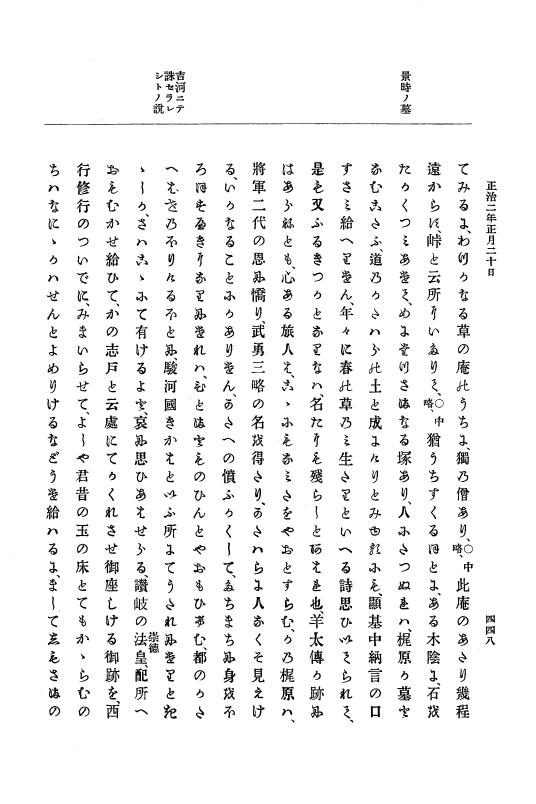 正治二年正月二十日
四四八
景時ノ墓
吉河ニテ
誅セラレ
シトノ説
てみるに、わつかなる草の庵のうちに、獨の僧あり、○中略、此庵のあたり幾程
遠からす、峠と云所にいたりて、○中略、猶うちすくるほとに、ある木陰に、石を
たかくつみあけて、めにたつさまなる塚あり、人にたつぬれハ、梶原か墓と
なむこたふ、道のかたハらの土と成にけりとみゆるにも、顯基中納言の口
すさミ給へりけん、年々に春草のミ生たりといへる詩思ひいてられて、
是も又ふるきつかとなりなハ、名たにも殘らしとあはれ也、羊太傳の跡に
はあらねとも、心ある旅人は、こゝにもなみたをやおとすらむ、かの梶原ハ、
將軍二代の恩に憍り、武勇三略の名を得たり、かたハらに人なくそ見えけ
る、いかなることにかありけん、かたへの憤ふかくして、たちまちに身をほ
ろほすへきになりにけれハ、ひとまともものひんとやおもひけむ、都のかた
へはせのほりけるほとに、駿河國きかはといふ所にてうたれにけりときゝ
しか、さハこゝにて有けるよと、哀に思ひあはせらる、讃岐の法皇、配所へ
崇德
おもむかせ給ひて、かの志戸と云處にてかくれさせ御座しける御跡を、西
行修行のついでに、みまいらせて、よしや君昔の玉の床とてもかゝらむの
ちハなにゝかハせんとよめりけるなどうけ給ハるに、ましてしもさまの